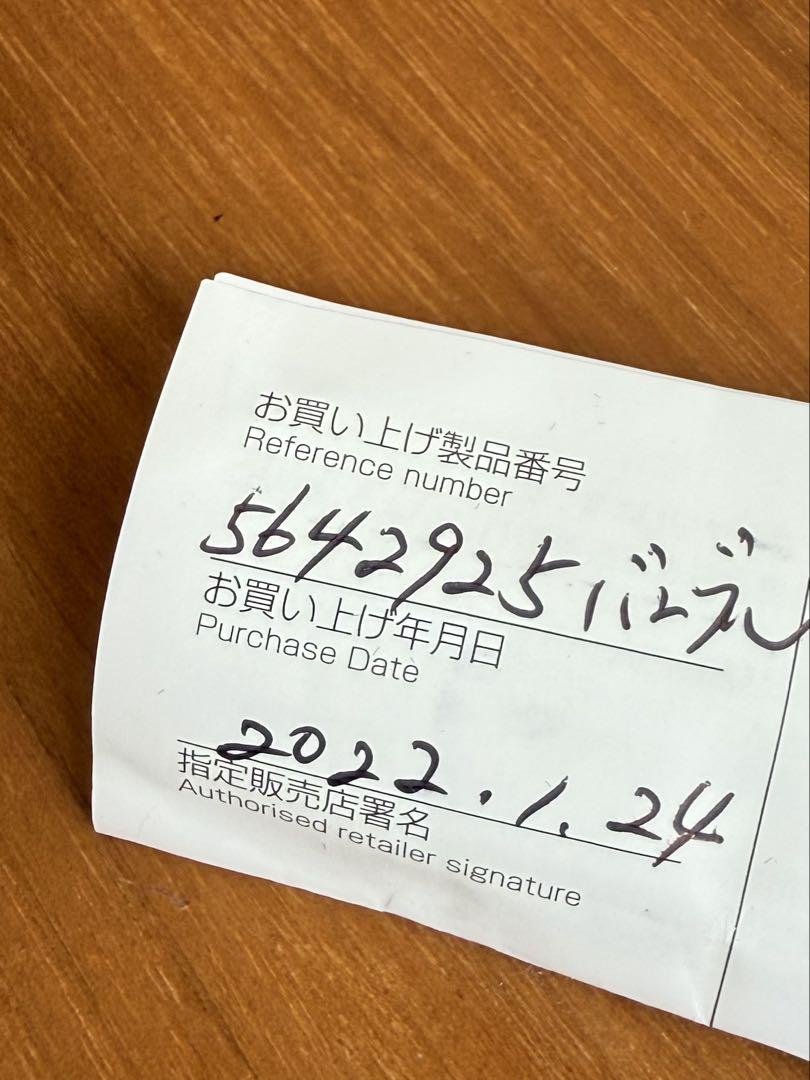 お買い上げ製品番号
Reference number
5642925 バングル
お買い上げ年月日
Purchase Date
2022.1.24
指定販売店署名
Authorised retailer signature